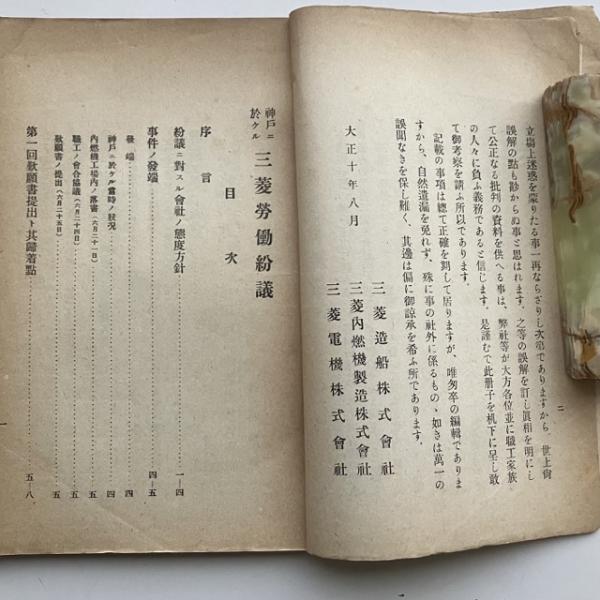 二
立場上迷惑を蒙りたる事一再ならざりし次第でありますから、世上尚
誤解の點も尠からぬ事と思はれます。之等の誤解を訂し眞相を明にし
て公正なる批判の資料を供へる事は、弊社等が大方各位並に職工家族
の人々に負ふ義務であると信じます。是謹むで此册子を机下に呈し敢
て御考察を請ふ所以であります。
記載の事項は總て正確を期して居りますが、唯匆卒の編輯でありま
すから、自然遺漏を免れず、殊に事の社外に係るもの、如きは萬一の
誤聞なきを保し難く、其邊は偏に御諒承を希ふ所であります。
大正十年八月
三菱造船株式會社
三菱內燃機製造株式會社
三菱電機株式會社
神戶ニ於ケル 三菱勞働紛議
目次
序言
紛議ニ對スル會社ノ態度方針……一—四
事件ノ發端……四—五
發端……四
神戶ニ於ケル當時ノ狀況……四
內燃機工場內ノ落書(六月二十一日)……五
職工ノ會合協議(六月二十四日)……五
歎願書ノ提出(六月二十五日)……五
第一回歎願書提出ト其歸着點……五—八
一